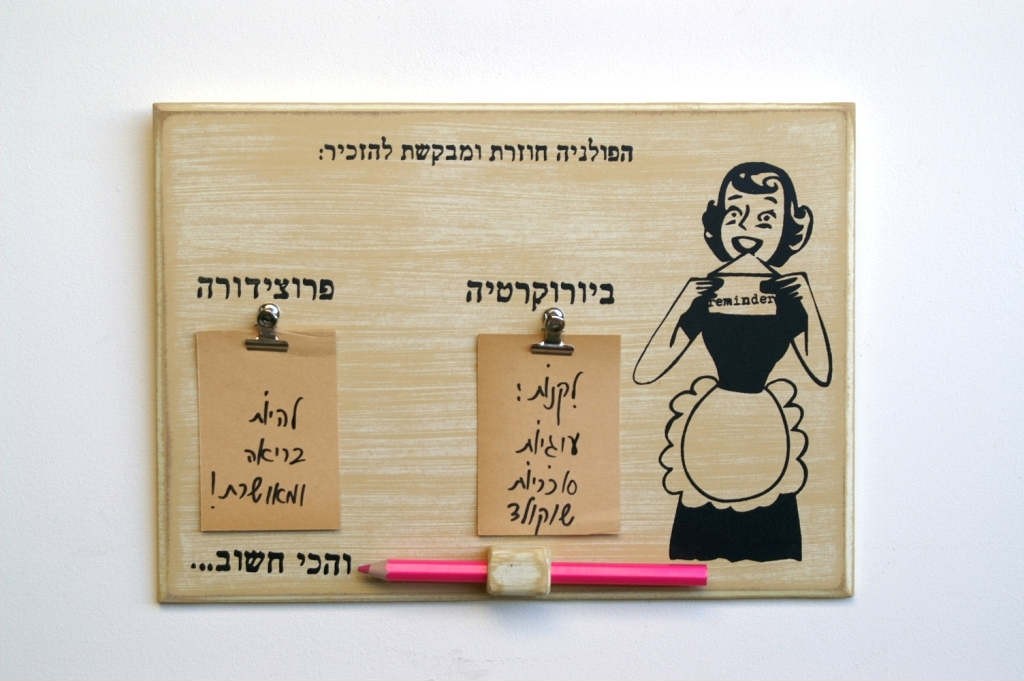 הפולניה חוזרת ומבקשת להזכיר:
reminder
ביורוקרטיה
לקנות:
עוגיות
סוכריות
שוקולד
פרוצידורה
להיות
בריאה
ומאושרת!
והכי חשוב...